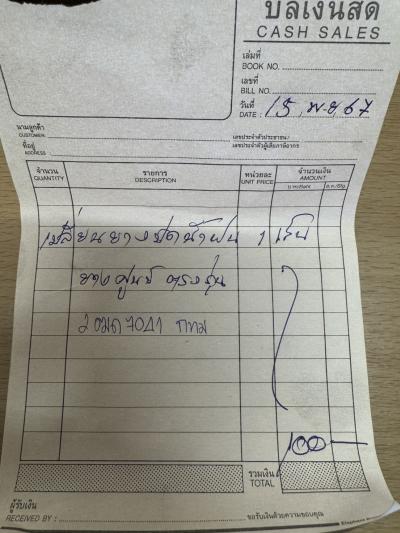 บิลเงินสด
CASH SALES
เล่มที่
BOOK NO.
เลขที่
BILL NO.
วันที่
DATE : 15 พ.ย 67
นามลูกค้า
CUSTOMER
เลขประจำตัวประชาชน/
ที่อยู่
ADDRESS
เลขประจำตัวผู้เสียภาษีอากร
จำนวน
QUANTITY
รายการ
DESCRIPTION
หน่วยละ
UNIT PRICE
จำนวนเงิน
AMOUNT
เปลี่ยนยางปัดน้ำฝน 1 เส้น
ยางศูนย์ ตรงรุ่น
7041 กทม
100 —
รวมเงิน
TOTAL
ผู้รับเงิน
RECEIVED BY :
ขอรับเงินด้วยความขอบคุณ